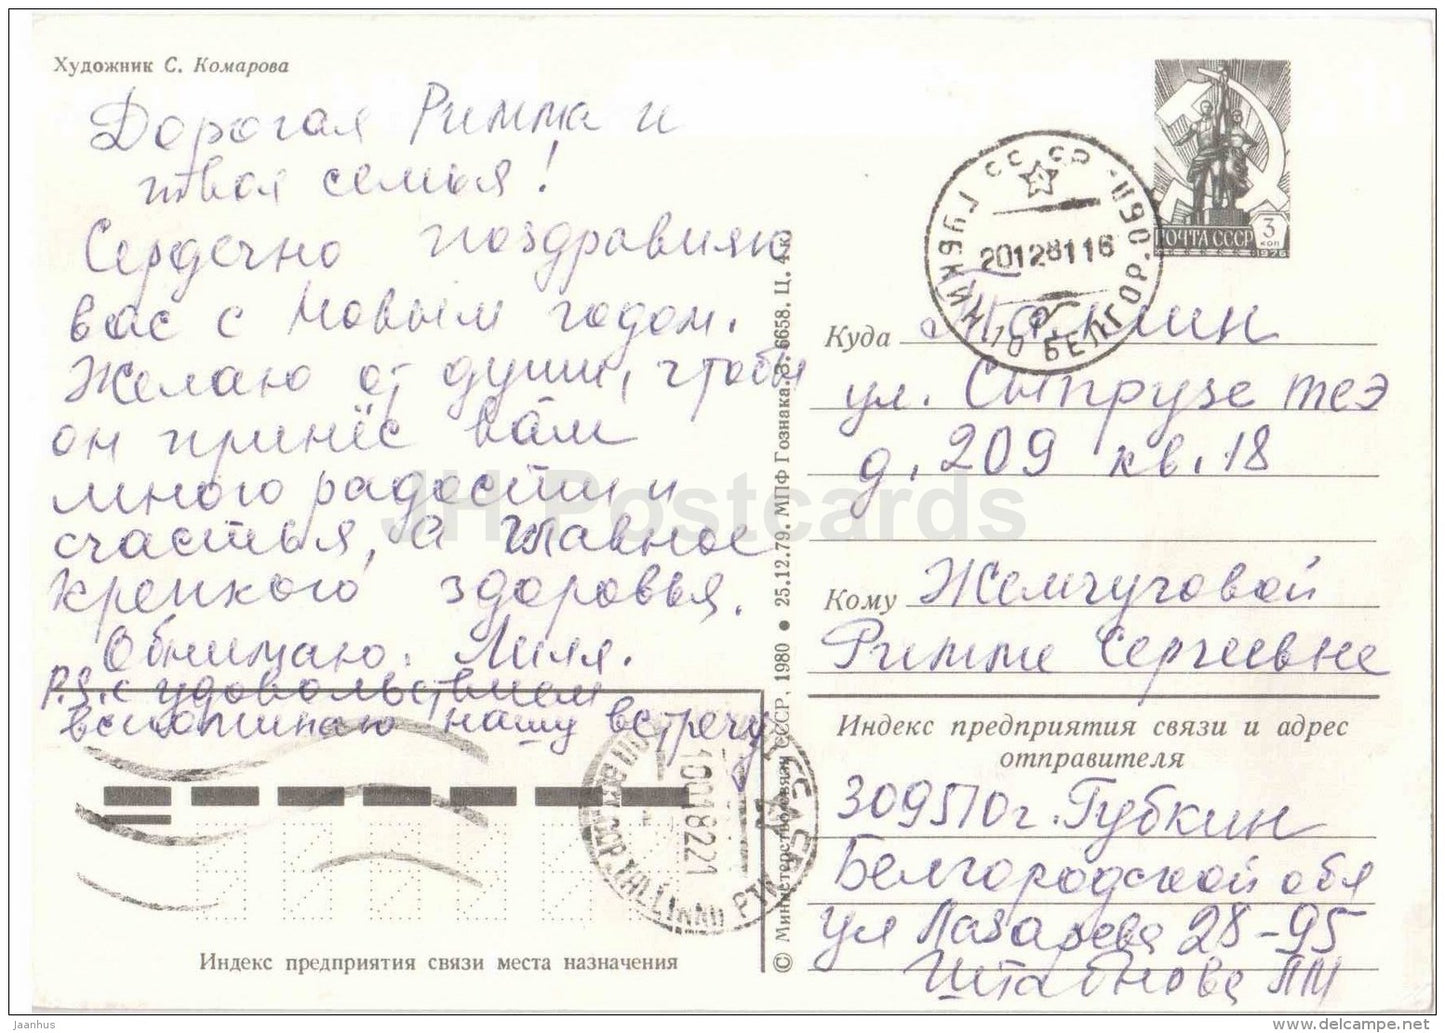 Художник С. Комарова
Дорогая Римма и
твоя семья!
Сердечно поздравляю
вас с Новым годом.
Желаю от души, чтобы
он принёс вам
много радости и
счастья, а главное
крепкого здоровья.
Обнимаю. Лиля.
P.S. с удовольствием
вспоминаю нашу встречу
Индекс предприятия связи места назначения
© Министерство связи СССР, 1980 ● 25.12.79. МПФ Гознака. З. 6658. Ц. 4 к.
ПОЧТА СССР
3
коп
1976
СССР
ГУБКИН 10 БЕЛГОР. ОБЛ.
201281116
Куда Таллин
ул. Сыпрузе теэ
д. 209 кв. 18
Кому Жемчуговой
Римме Сергеевне
Индекс предприятия связи и адрес
отправителя
309510 г. Губкин
Белгородской обл
ул Лазарева 28-95
Штабнова ЛМ
TALLINN
10018221
JH Postcards
jaanhus
www.delcampe.net